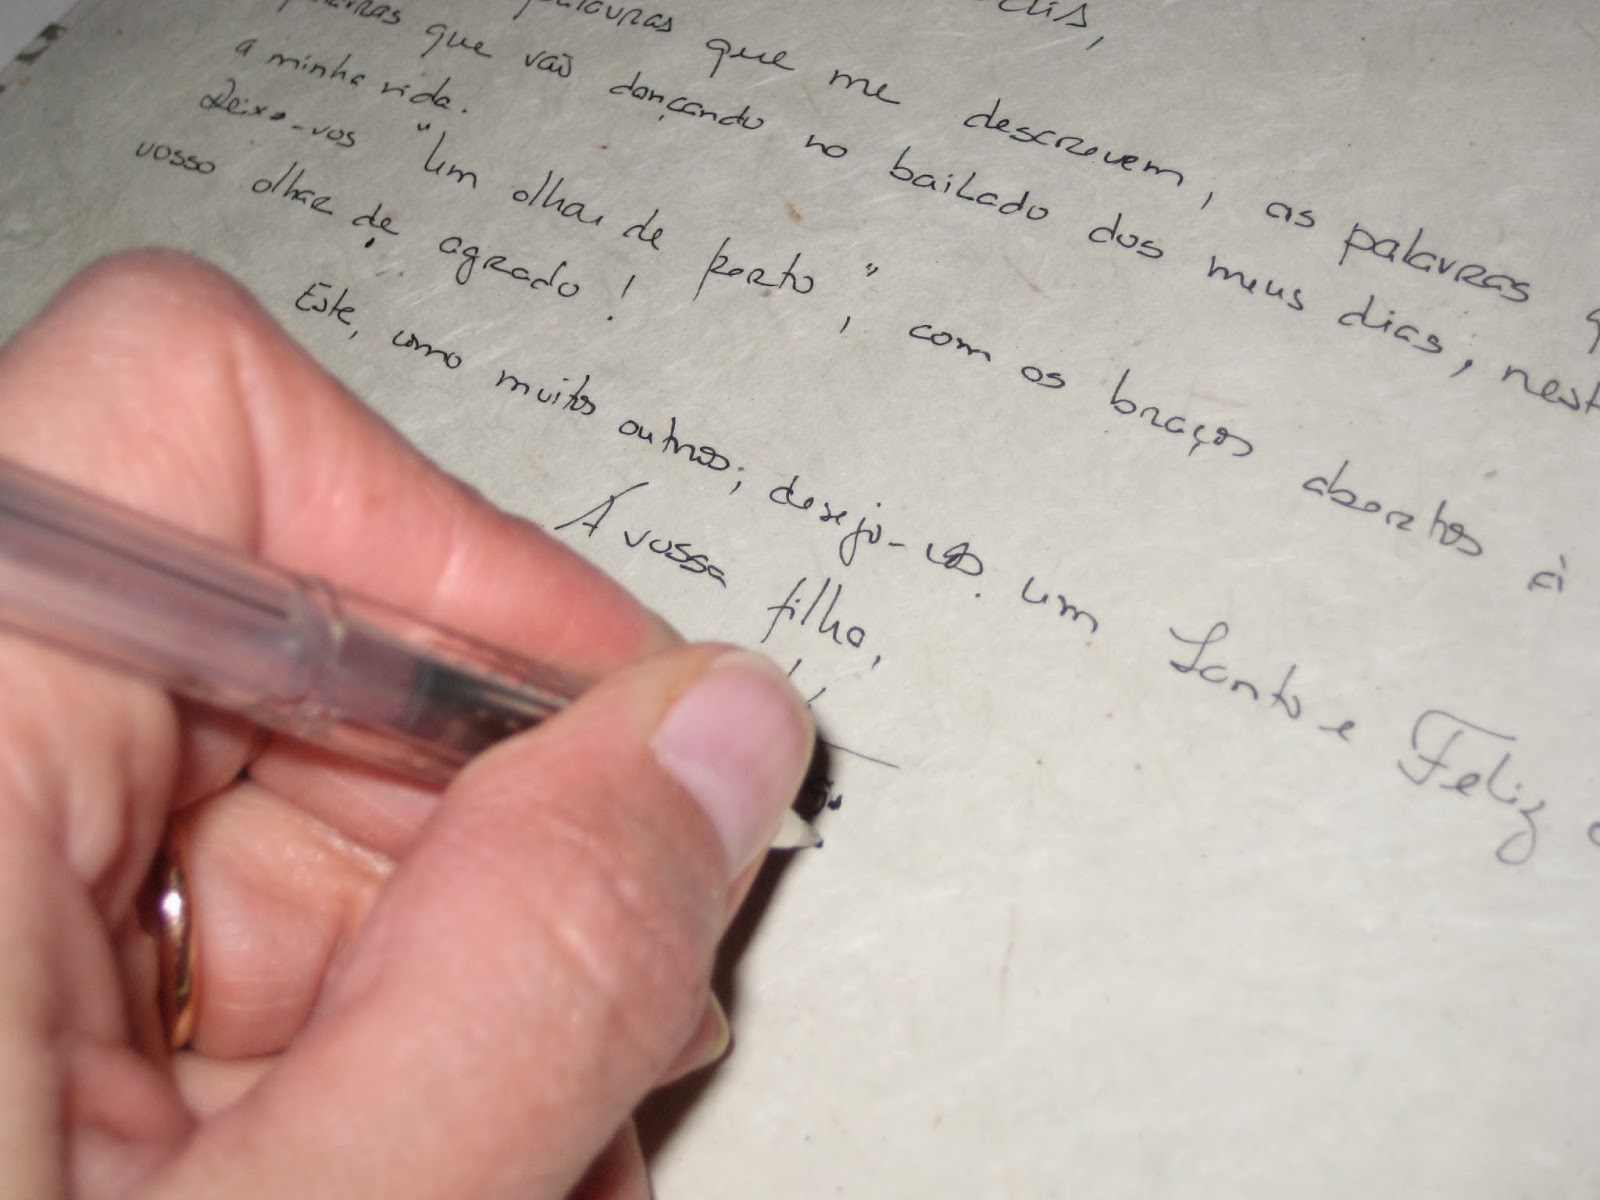 palavras que me descrevem, as palavras q
palavras que vão dançando no bailado dos meus dias, nest
a minha vida.
Deixo-vos "Um olhar de perto", com os braços abertos à
vosso olhar de agrado!
Este, como muitos outros; desejo-vos um Santo e Feliz
A vossa filha,